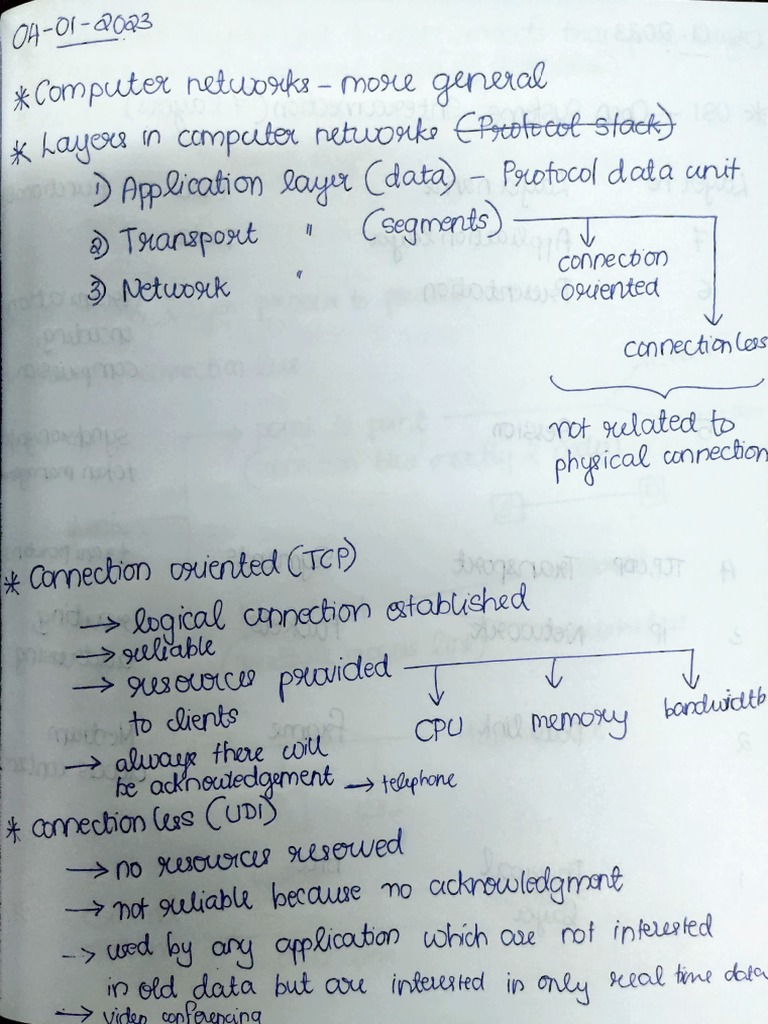 04-01-2023
* Computer networks - more general
* Layers in computer networks (Protocol Stack)
1) Application layer (data) - Protocol data unit
2) Transport " (segments)
3) Network "
connection
oriented
connectionless
not related to
physical connection
* Connection oriented (TCP)
→ logical connection established
→ reliable
→ resources provided
to clients
CPU memory bandwidth
→ always there will
be acknowledgement → telephone
* connectionless (UDI)
→ no resources reserved
→ not reliable because no acknowledgment
-> used by any application which are not interested
in old data but are interested in only real time data
→ video conferencing